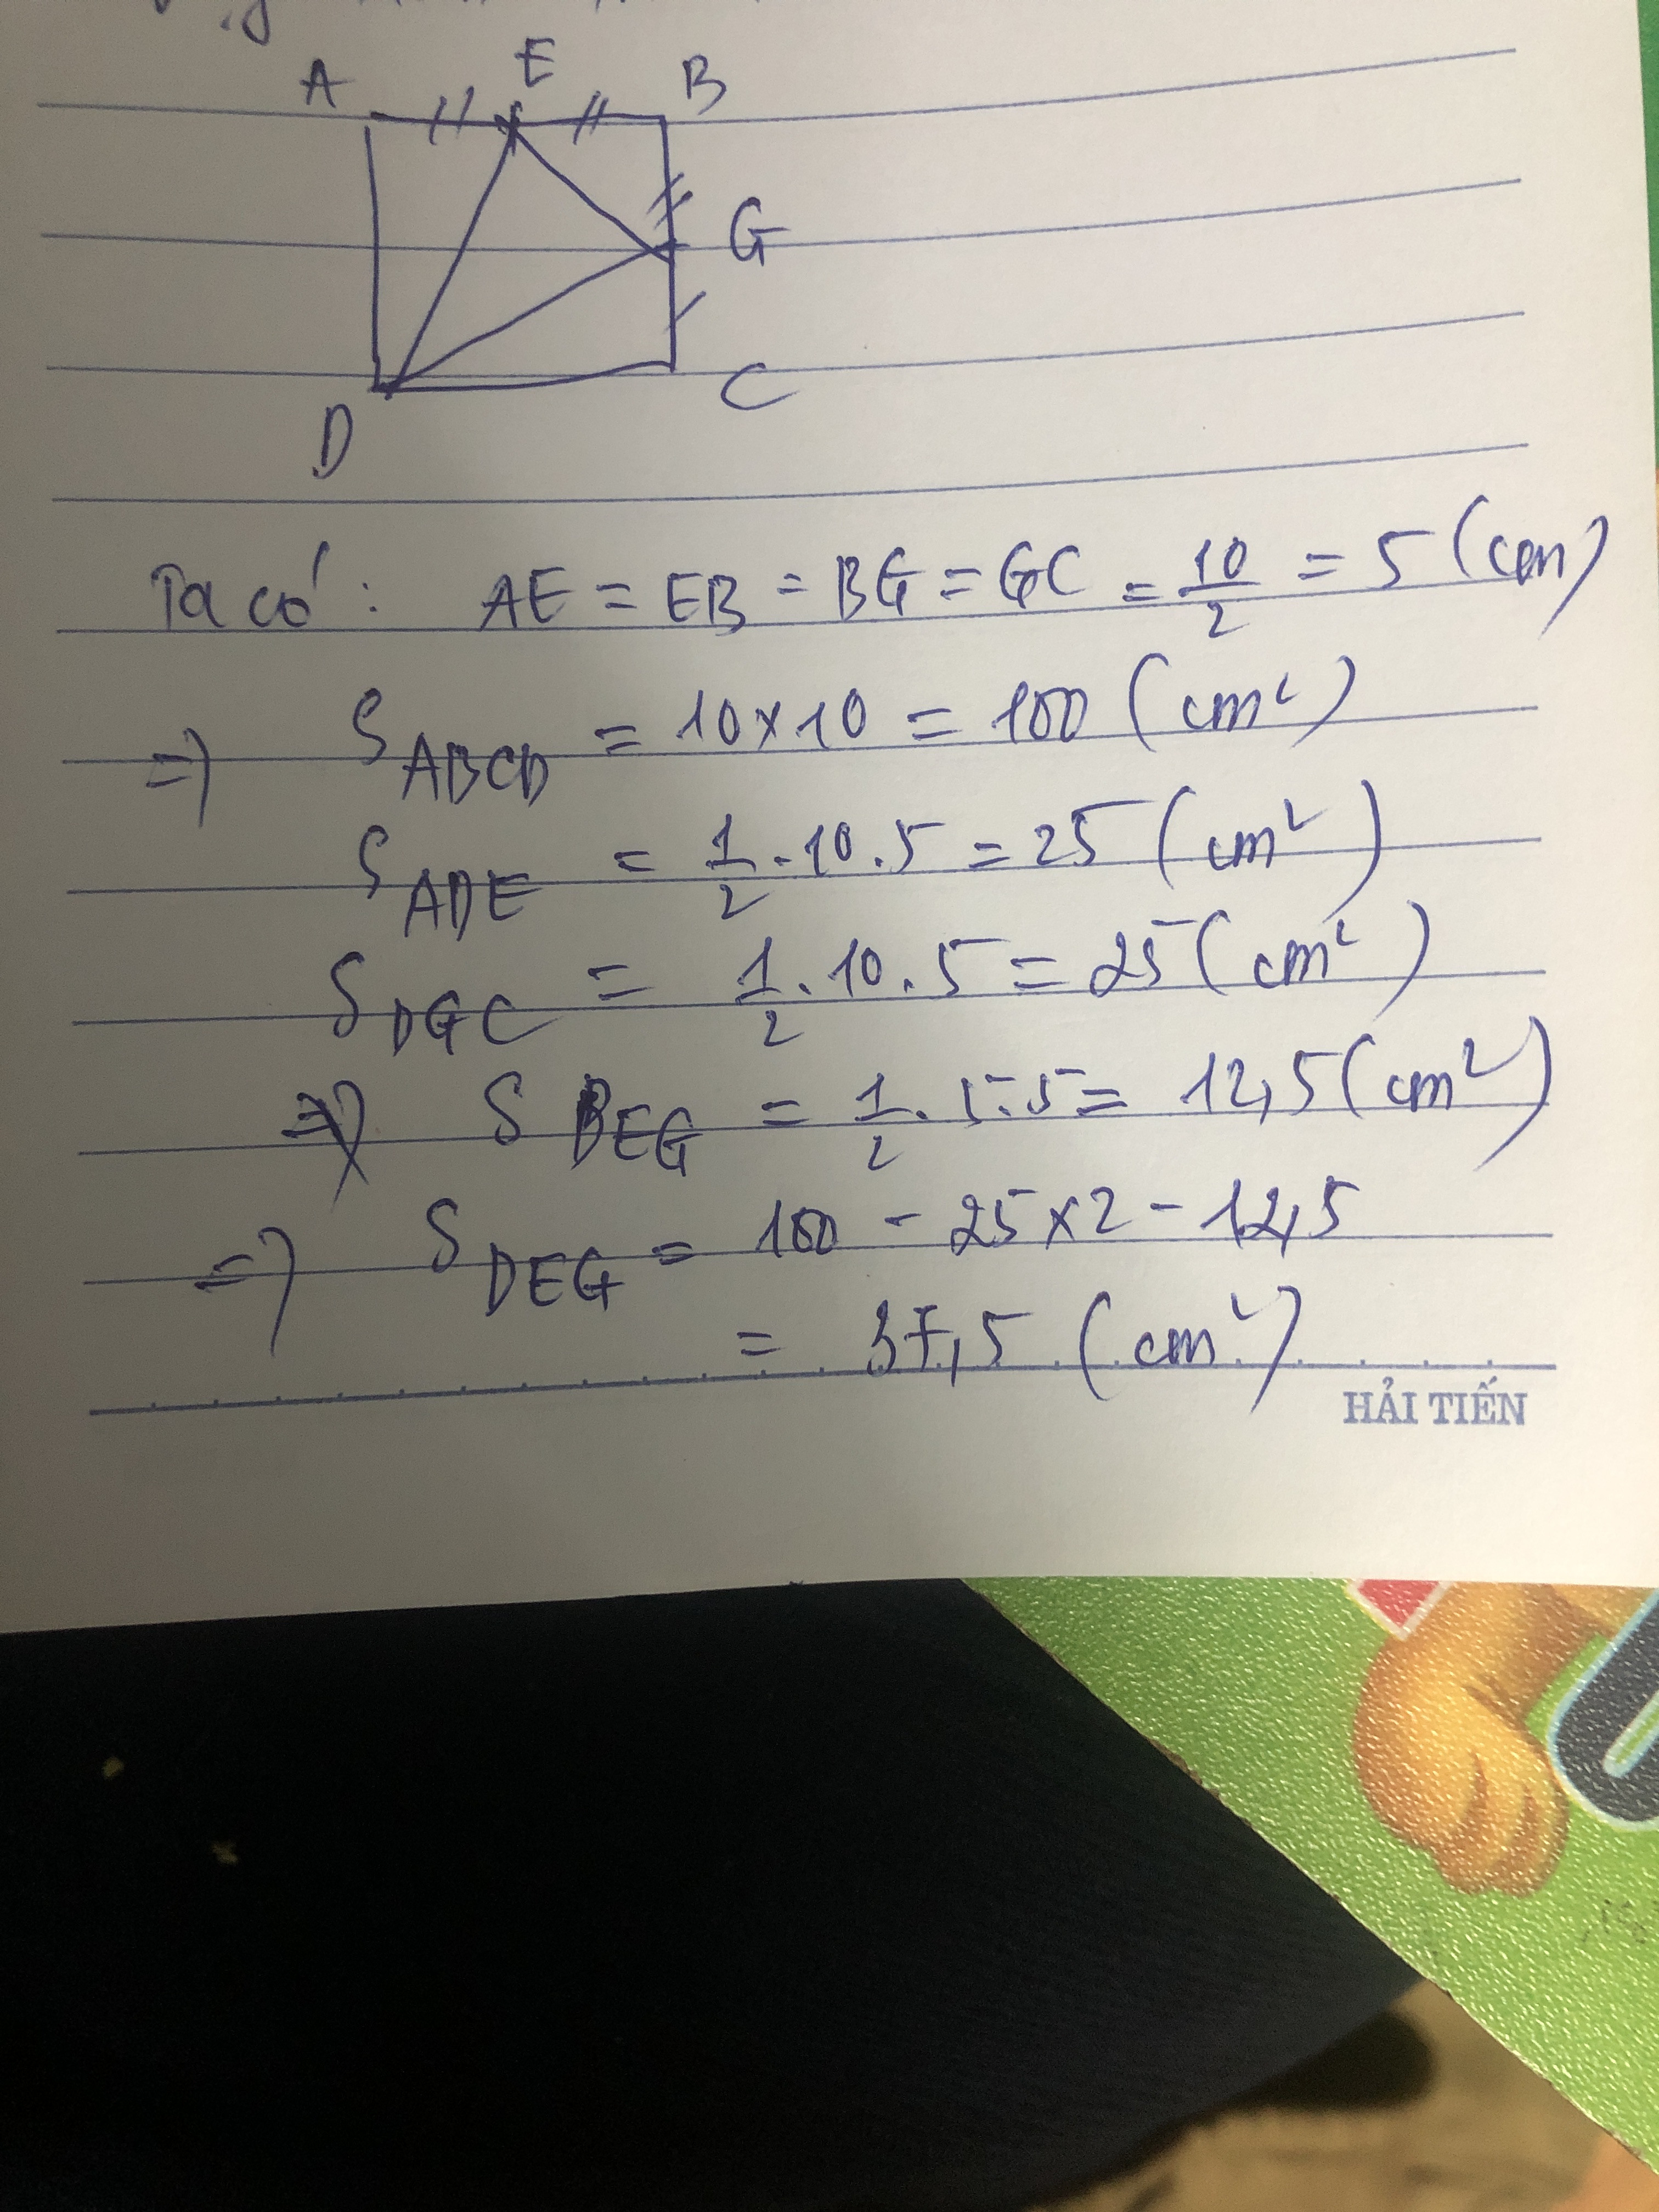 A E B
G
D C
Ta có: AE = EB = BG = GC = 10/2 = 5 (cm)
=> S ABCD = 10x10 = 100 (cm²)
S ADE = 1/2 . 10 . 5 = 25 (cm²)
S DGC = 1/2 . 10 . 5 = 25 (cm²)
=> S BEG = 1/2 . 5 . 5 = 12,5 (cm²)
=> S DEG = 100 - 25x2 - 12,5
= 37,5 (cm²)
HẢI TIẾN